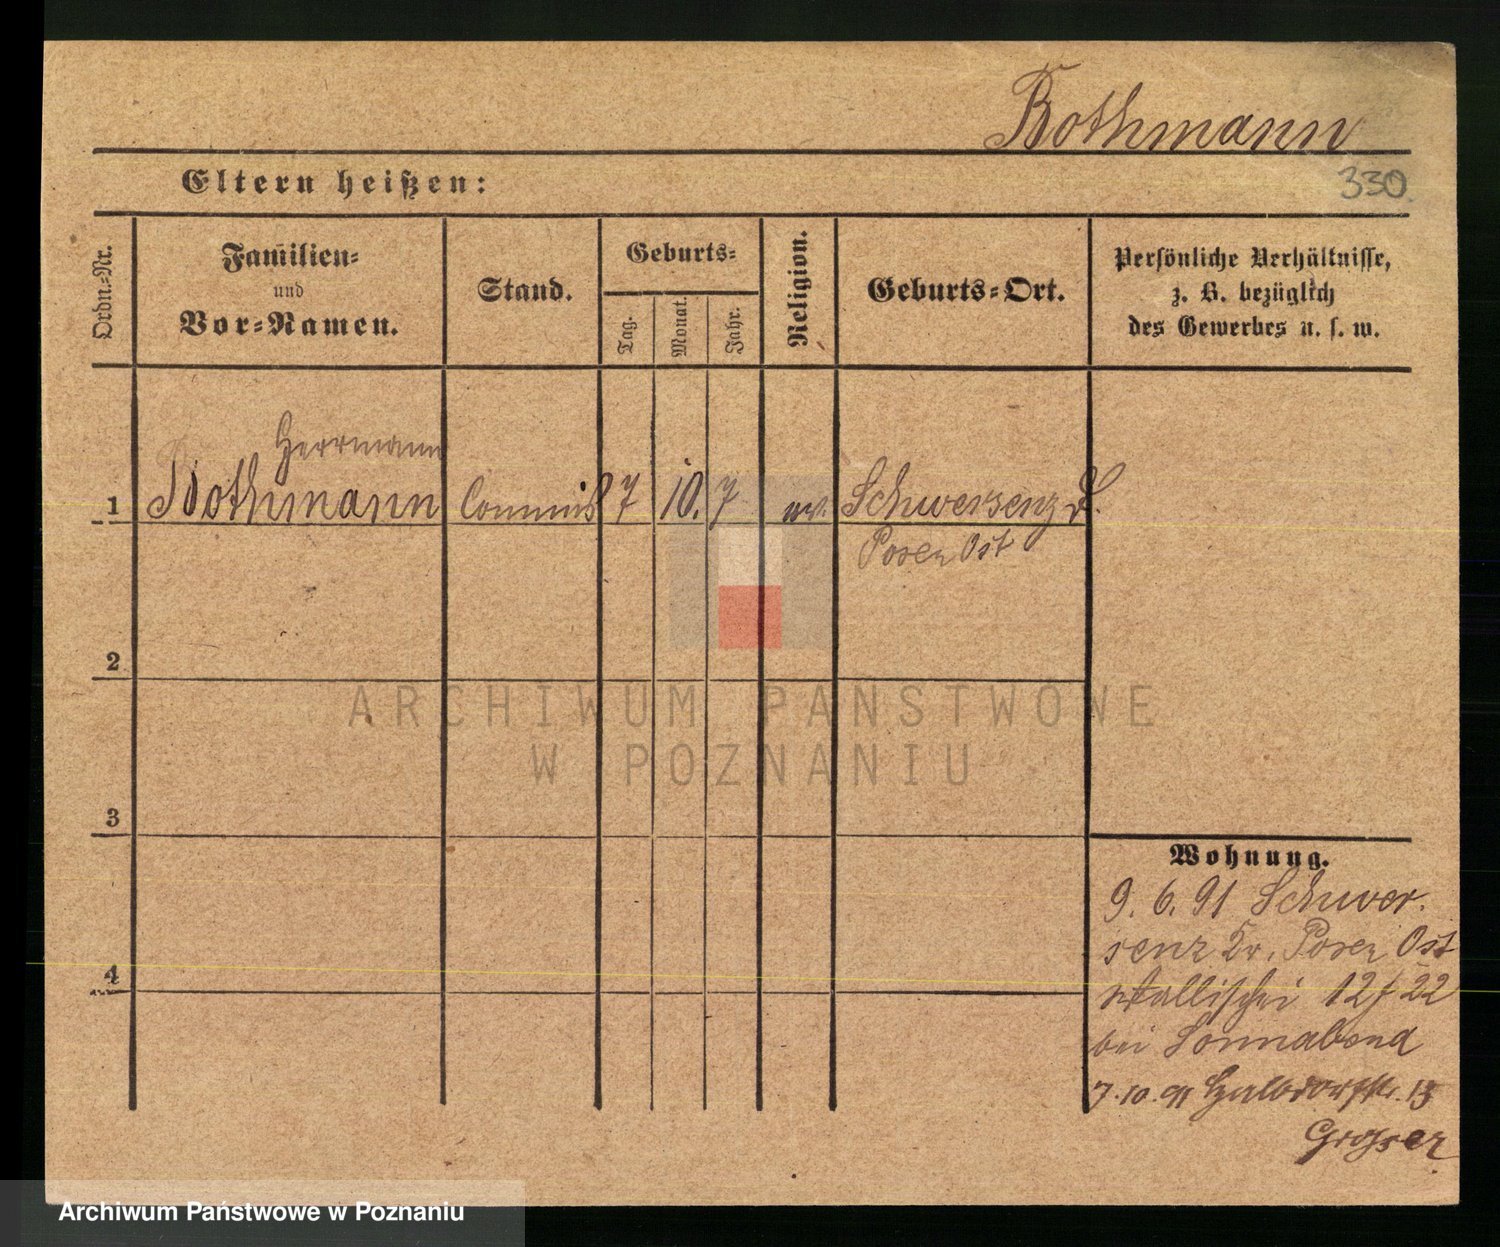 Bothmann
330.
Eltern heißen:
Ordn.-Nr.
Familien-
und
Vor-Namen.
Stand.
Geburts-
Tag.
Monat.
Jahr.
Religion.
Geburts-Ort.
Persönliche Verhältnisse,
z. B. bezüglich
des Gewerbes u. s. w.
Herrmann
1 Bothmann Commis 7 10. 7 Schwersenz
Posen Ost
2
3
4
Wohnung.
9. 6. 91 Schwer-
senz Kr. Posen Ost
Wallischei 12/22
bei Sonnabend
7. 10. 91 Halbdorfstr. 15
Grosser
ARCHIWUM PAŃSTWOWE
W POZNANIU
Archiwum Państwowe w Poznaniu